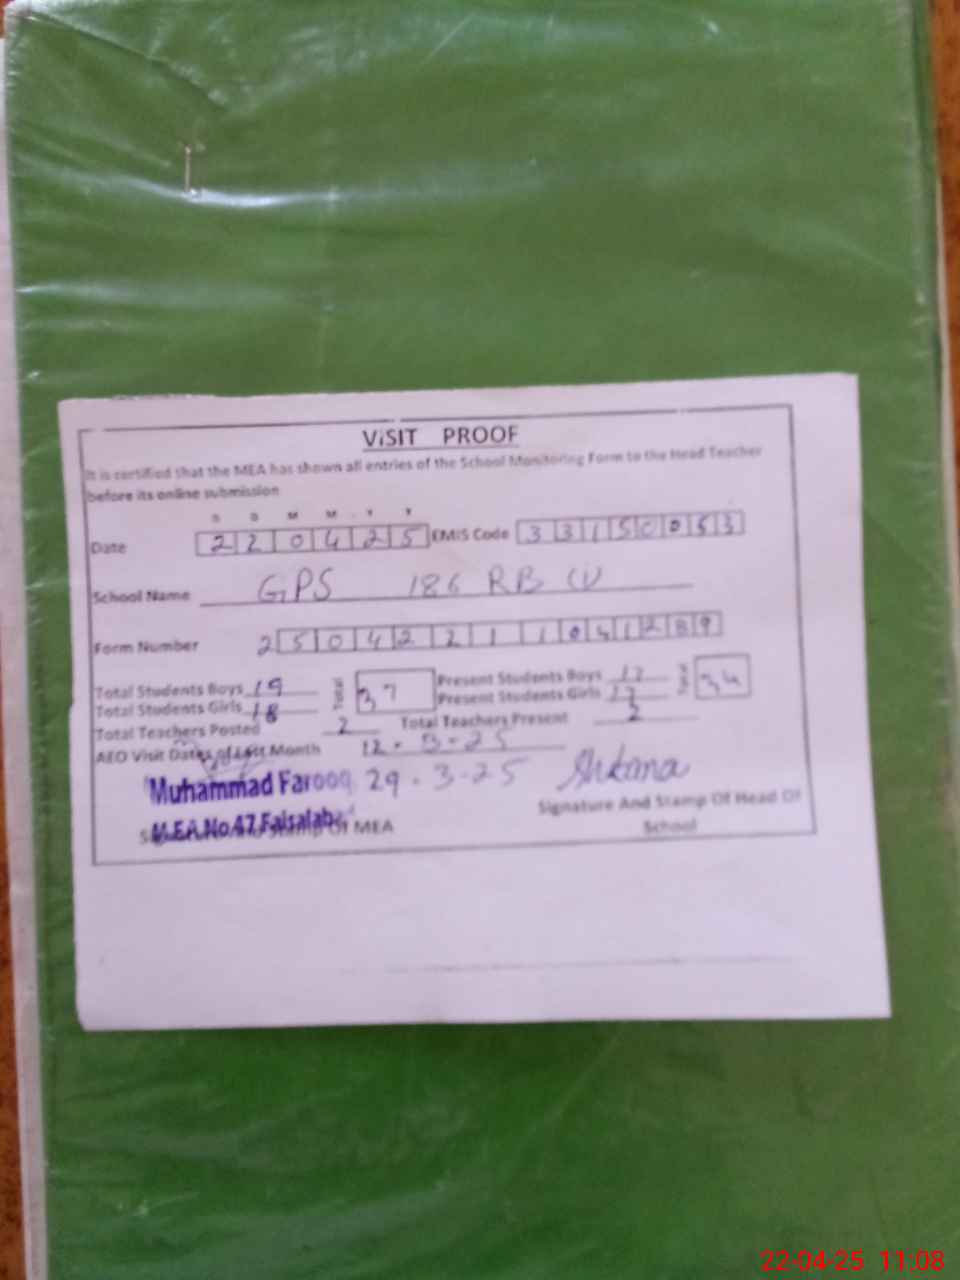 ViSIT PROOF
It is certified that the MEA has shown all entries of the School Monitoring Form to the Head Teacher
before its online submission
D D M M Y Y
Date 220425 EMIS Code 33150053
School Name GPS 186 RB (i)
Form Number 25042211041289
Total Students Boys 19 Total 37 Present Students Boys 17 Total 34
Total Students Girls 18 Present Students Girls 17
Total Teachers Posted 2 Total Teachers Present 2
AEO Visit Dates of Last Month 12.3-25
29.3-25
Muhammad Farooq
M.E.A No.47 Faisalabad
Signature And Stamp Of MEA
Signature And Stamp Of Head Of
School
22-04-25 11:08